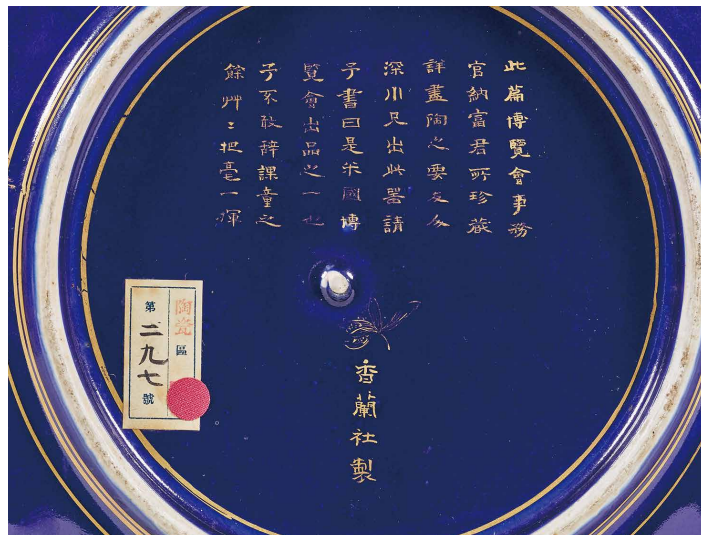 此篇博覽會事務
官納富君所珍蔵
詳盡陶之要友人
深川兄出此器請
予書曰是米國博
覽會出品之一也
予不敢辭課童之
餘艸〻把毫一揮
香蘭社製
陶瓷區
第二九七號